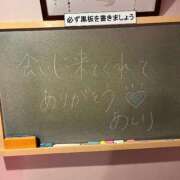 必ず黒板を書きましょう
会いに来てくれて
ありがとう♡
めしり